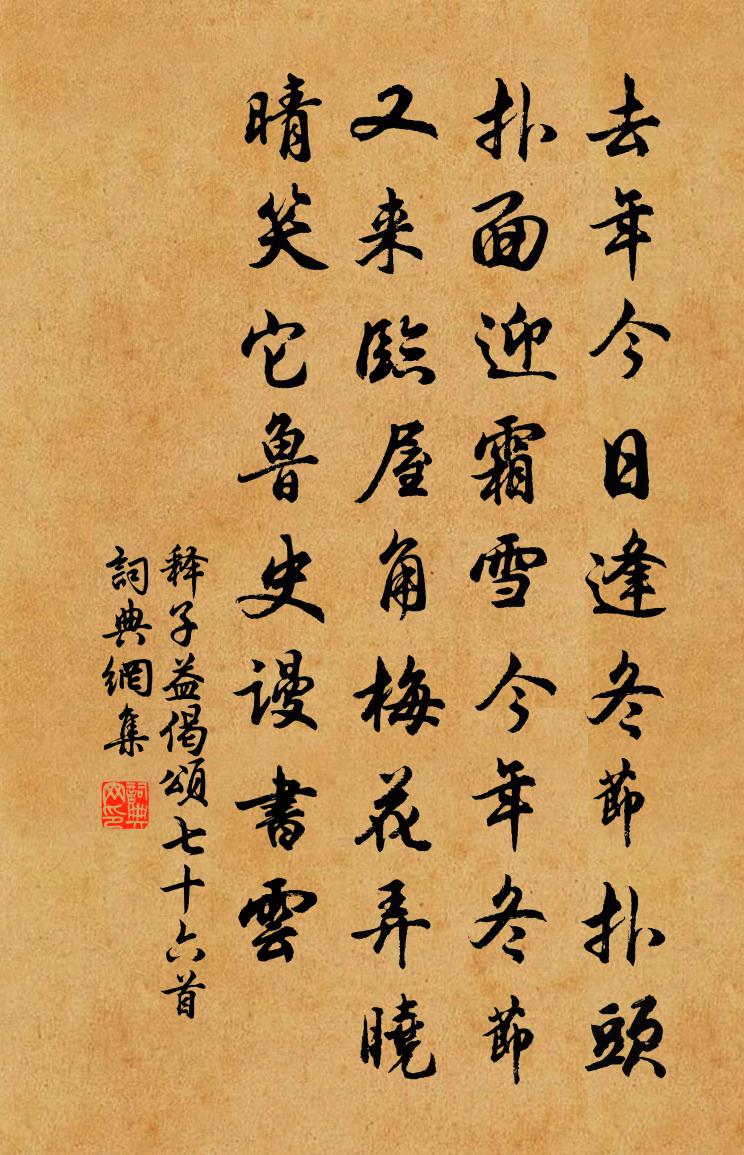 去年今日逢冬節扑頭
扑面迎霜雪今年冬節
又来臨屋角梅花弄曉
晴笑它魯史謾書雲
释子益偈頌七十六首
詞典網集
詞典网印